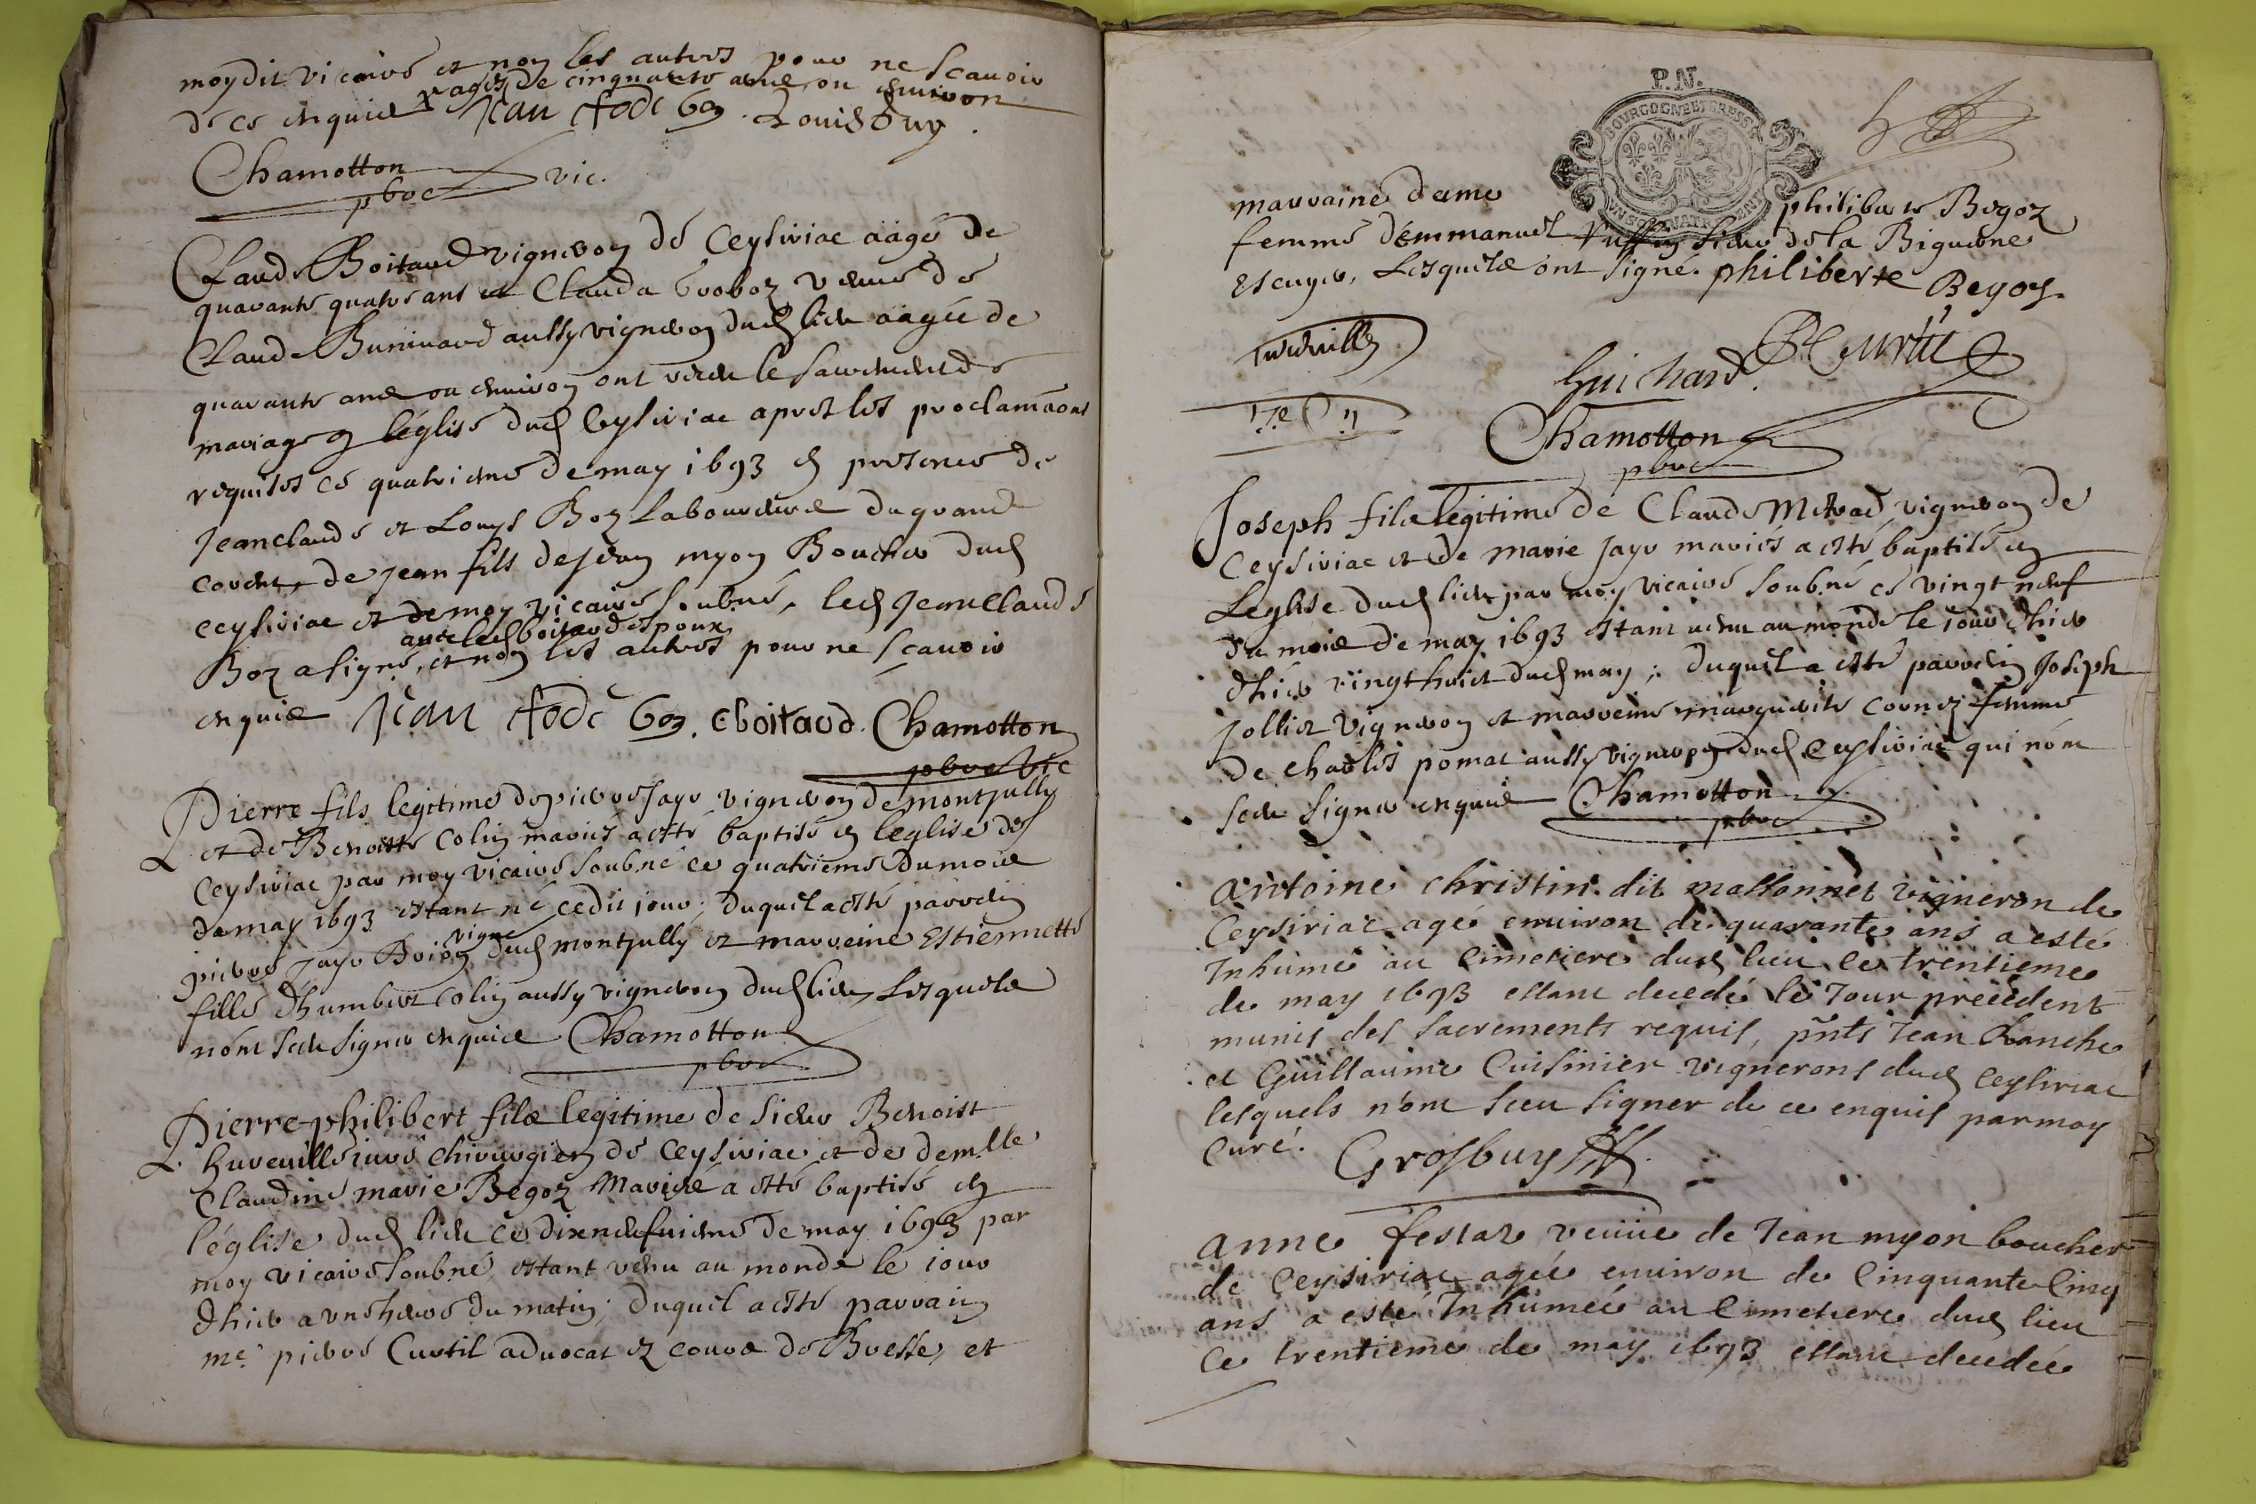 moydit vicaire et non les autres pour ne scavoir
x agez de cinquante ans ou environ
de ce enquis Jean Boz Louis Buy
Chamotton
pbre vic.
Claude Boitaud vigneron de Ceysiriac aagé de
quarante quatre ans et Clauda Broboz veuve de
Claude Buninard aussy vigneron dud lieu aagée de
quarante ans ou environ ont receu le sacrement de
mariage en l'église dud Ceysiriac aprez les proclamaons
requises ce quatrieme de may 1693 en presence de
Jeanclaude et Louys Boz laboureurs du grand
Corent, de Jean fils de Jean myon Boucher dud
ceysiriac et de moy vicaire soubné, led Jeanclaude
avec led boitaud espoux
Boz a signé, et non les autres pour ne scavoir
enquis Jean Boz. CBoitaud. Chamotton
pbre vic
Pierre fils legitime de pierre Jayr vigneron de montjully
et de Benoitte Colin mariés a esté baptisé en leglise de
Ceysiriac par moy vicaire soubné ce quatrieme du mois
de may 1693 estant né cedit jour; duquel a esté parrein
vigne
pierre Jayr dud montjully et marreine Estiennette
fille d'humbert Colin aussy vigneron dud lieu, Lesquels
n'ont sceu signer enquis Chamotton
pbre
Pierre-philibert fils legitime de sieur Benoist
hureville juré chirurgien de Ceysiriac et de demlle
Claudine marie Begoz Mariés a esté baptisé en
l'église dud lieu ce dixneufvieme de may 1693 par
moy vicaire soubné, estant venu au monde le jour
d'hier a une heure du matin; duquel a esté parrain
me pierre Curtil advocat ez cours de Bresse, et
P.N.
BOURGOGNE ET BRESSE
marraine dame philiberte Begoz
femme d'emmanuel sieur de la Biguerne
Escuyer, Lesquels ont signé. philiberte Begoz
hureville
Guichard. P Curtil
Chamotton
pbre
Joseph fils legitime de Claude vigneron de
Ceysiriac et de marie Jayr mariés a esté baptisé en
Leglise dud lieu par moy vicaire soubné ce vingt neuf
du mois de may 1693 estant venu au monde le jour d'hier
d'hier vingt huict dud may; duquel a esté parrein Joseph
Jollier vigneron et marreine marguerite Cornez femme
de charles pomat aussy vigneron dud Ceysiriac qui n'ont
sceu signer enquis Chamotton
pbre
Antoine christin dit massonnet vigneron de
Ceysiriac agé environ de quarante ans a esté
Inhumé au Cimetiere dud lieu ce trentieme
de may 1693 estant decedé le Jour precedent
munis des sacrements requis, pnts Jean Chanche
et Guillaume Cuisinier vignerons dud Ceysiriac
lesquels n'ont sceu signer de ce enquis par moy
Curé. Grosbuys
Anne festaz veuve de Jean myon boucher
de Ceysiriac agée environ de Cinquante Cinq
ans a esté Inhumée au Cimetiere dud lieu
ce trentieme de may 1693 estant decedée